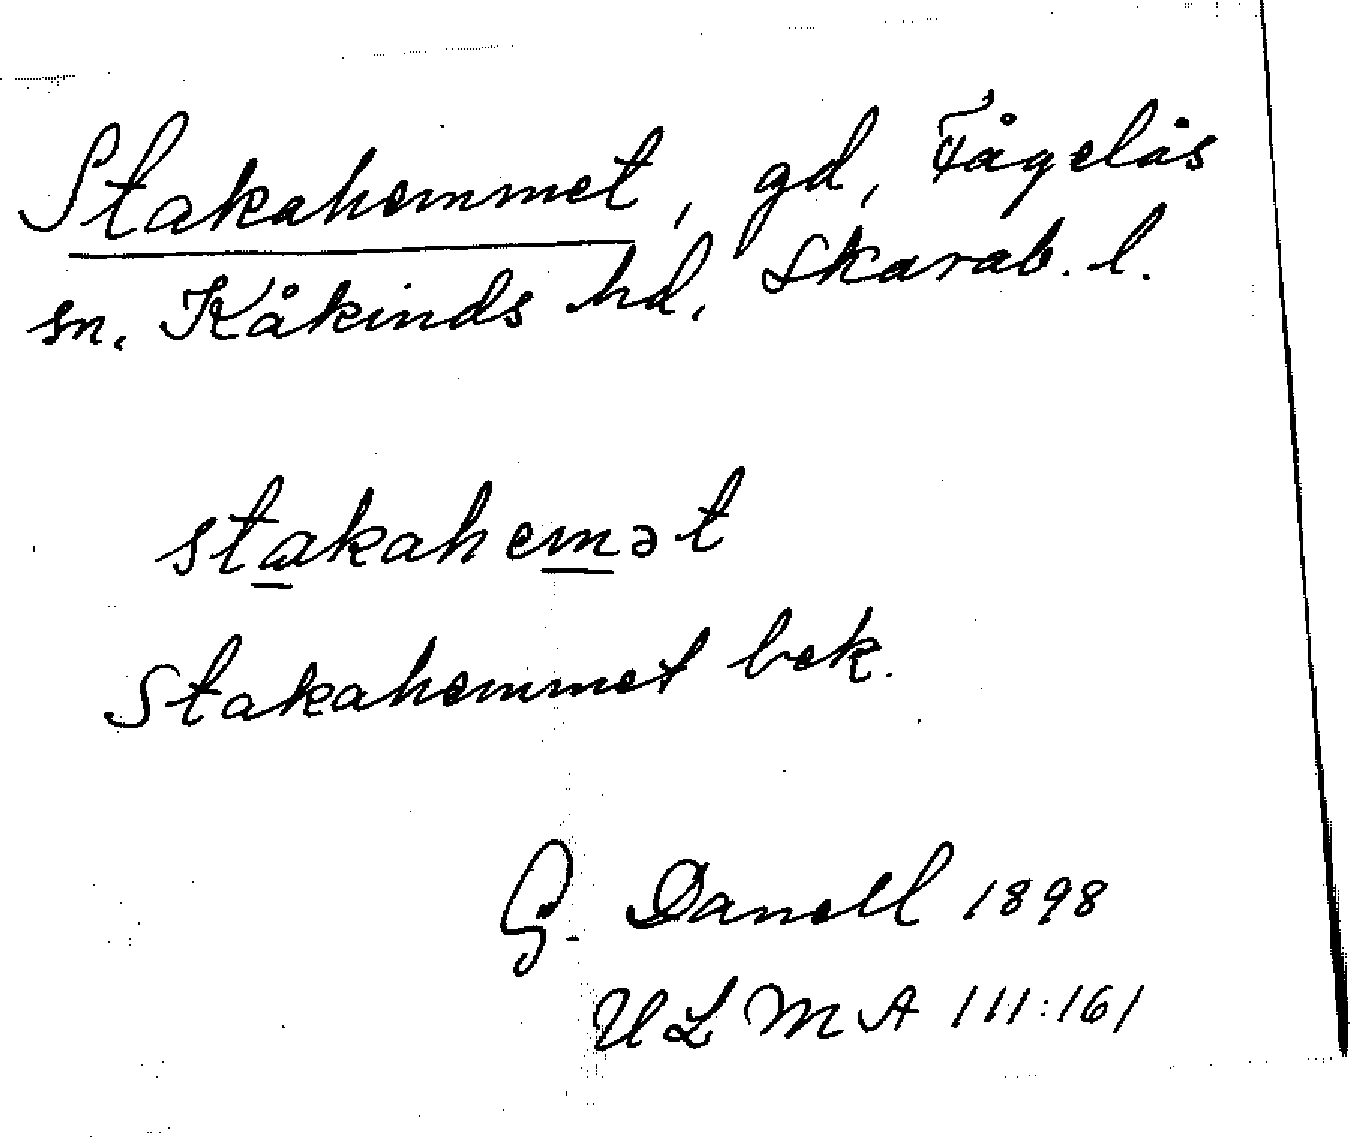 Stakahemmet, gd, Fågelås
sn. Kåkinds hd, Skarab. l.
stakahemət
Stakahemmet bek.
G. Danell 1898
ULMA 111:161